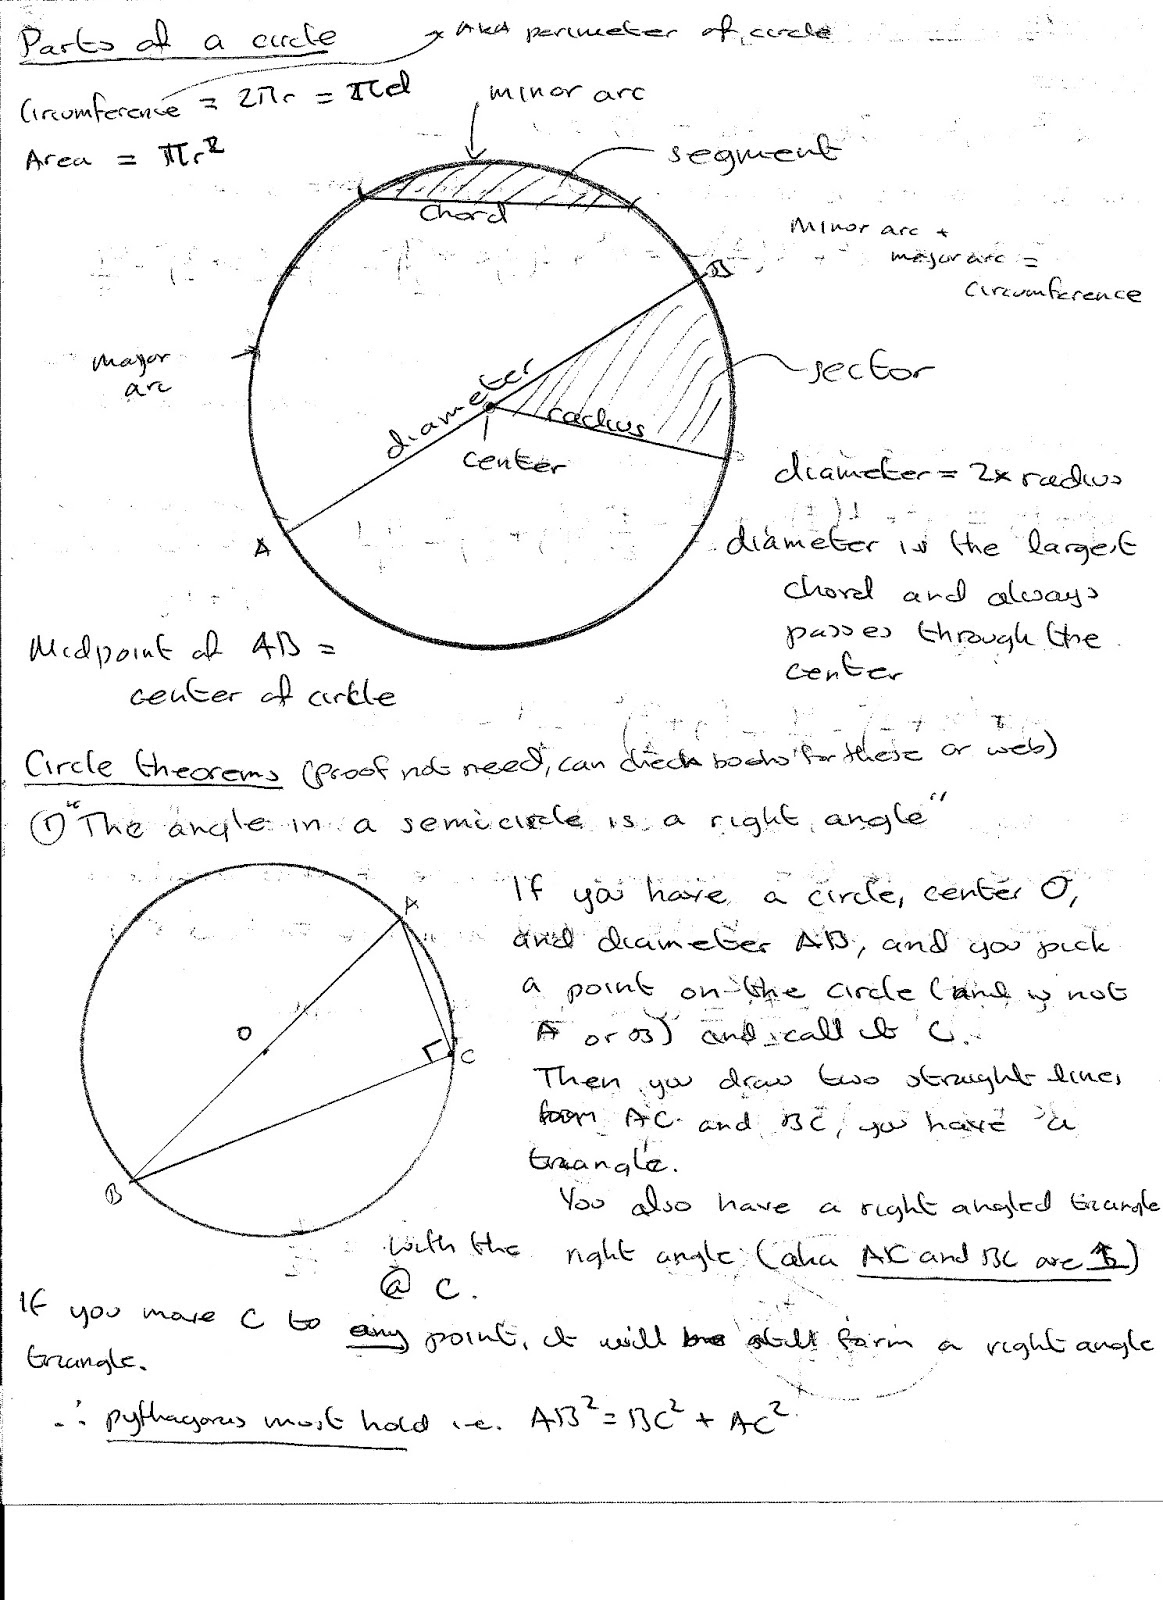 Parts of a circle
AKA perimeter of circle
Circumference = 2πr = πd
Area = πr²
minor arc
segment
chord
Minor arc +
major arc =
Circumference
B
major
arc
sector
diameter
radius
center
A
diameter = 2x radius
diameter is the largest
chord and always
passes through the
center
Midpoint of AB =
center of circle
Circle theorems (proof not need, can check books for these or web)
① "The angle in a semicircle is a right angle"
A
O
C
B
If you have a circle, center O,
and diameter AB, and you pick
a point on the circle (and is not
A or B) and call it C.
Then you draw two straight lines
from AC and BC, you have a
triangle.
You also have a right angled triangle
with the right angle (aka AC and BC are ⊥)
@ C.
If you move C to any point, it will still form a right angle
triangle.
∴ pythagoras must hold i.e. AB² = BC² + AC²